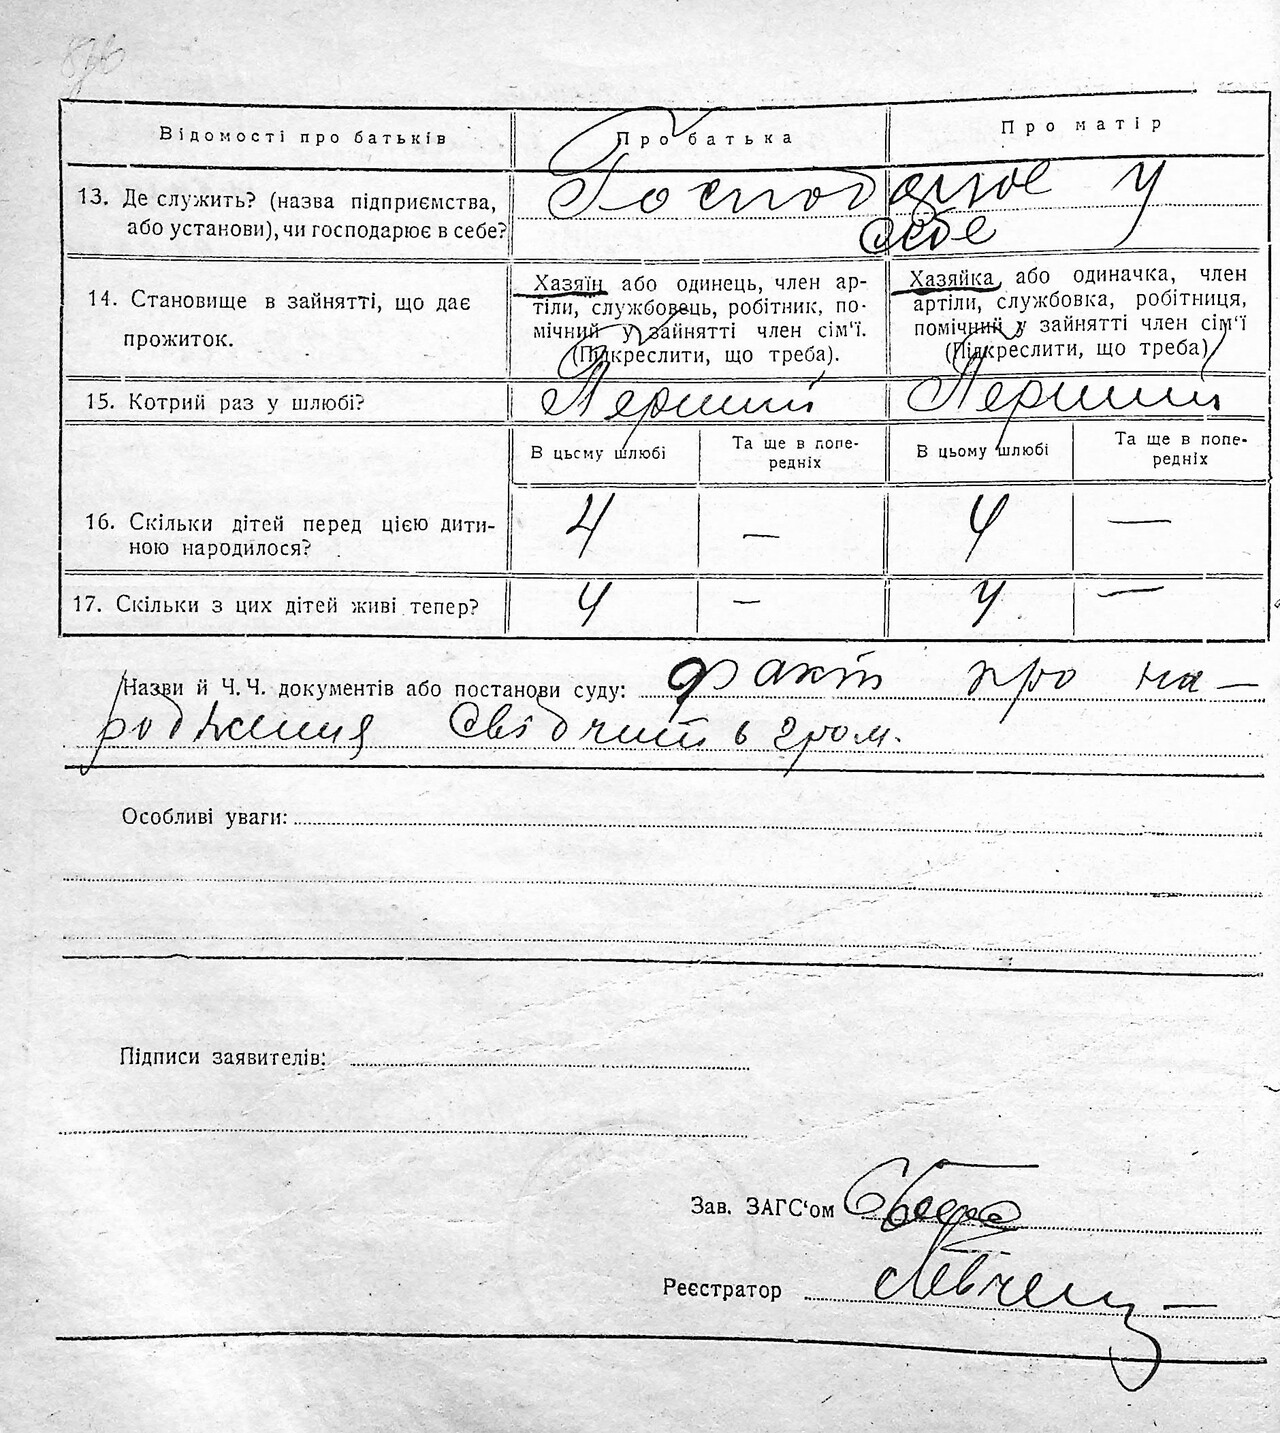 Відомості про батьків Про батька Про матір
13. Де служить? (назва підприємства, або установи), чи господарює в себе? Господарює у
себе
14. Становище в зайнятті, що дає
прожиток.
Хазяїн або одинець, член ар-
тіли, службовець, робітник, по-
мічний у зайнятті член сім'ї.
(Підкреслити, що треба).
Хазяйка або одиначка, член
артіли, службовка, робітниця,
помічний у зайнятті член сім'ї
(Підкреслити, що треба)
15. Котрий раз у шлюбі? Перший Перший
В цьому шлюбі
Та ще в попе-
редніх
В цьому шлюбі
Та ще в попе-
редніх
16. Скільки дітей перед цією дити-
ною народилося?
4 — 4 —
17. Скільки з цих дітей живі тепер? 4 — 4 —
Назви й Ч. Ч. документів або постанови суду: факт про на-
родження свідчить 6 гром.
Особливі уваги:
Підписи заявителів:
Зав. ЗАГС'ом
Реєстратор